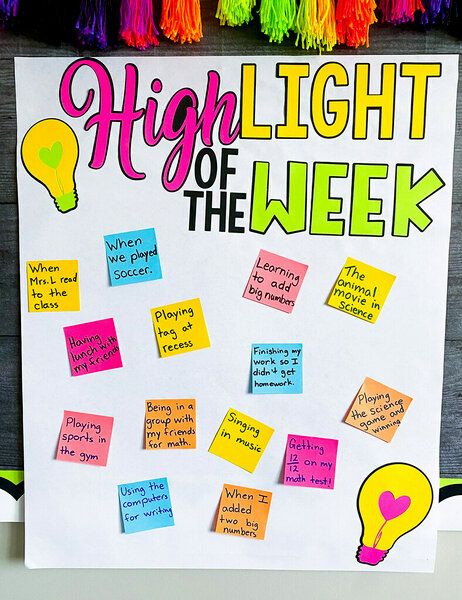 HighLIGHT
OF
THE WEEK
When
we played
soccer.
When
Mrs. L read
to the
class
Learning
to add
big numbers
The
animal
movie in
science
Having
lunch with
my friends
Playing
tag at
recess
Finishing my
work so I
didn't get
homework.
Playing
the science
game and
winning
Playing
sports in
the gym
Being in a
group with
my friends
for math.
Singing
in music
Getting
12 on my
12
math test!
Using the
computers
for writing
When I
added
two big
numbers